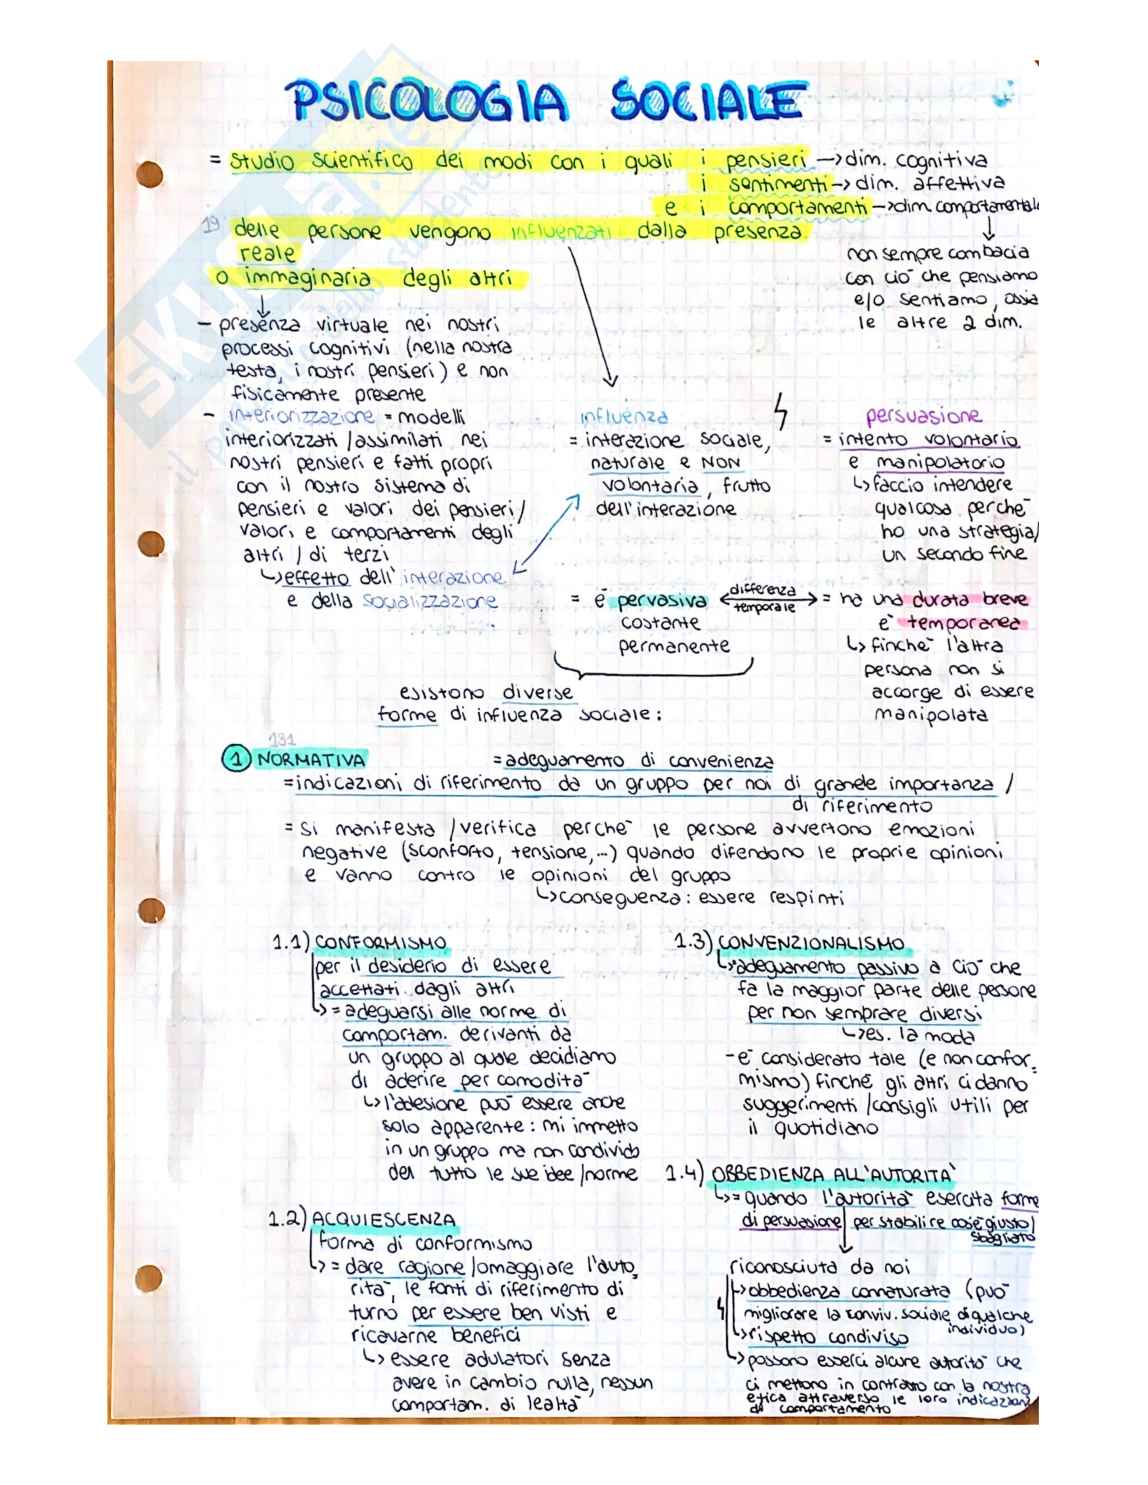 PSICOLOGIA SOCIALE
= studio scientifico dei modi con i quali i pensieri → dim. cognitiva
i sentimenti → dim. affettiva
e i comportamenti → dim. comportamentale
19 delle persone vengono influenzati dalla presenza
reale
o immaginaria degli altri
non sempre combacia
con ciò che pensiamo
e/o sentiamo, ossia
le altre 2 dim.
- presenza virtuale nei nostri
processi cognitivi (nella nostra
testa, i nostri pensieri) e non
fisicamente presente
- interiorizzazione = modelli
interiorizzati /assimilati nei
nostri pensieri e fatti propri
con il nostro sistema di
pensieri e valori dei pensieri/
valori e comportamenti degli
altri / di terzi
↳ effetto dell'interazione
e della socializzazione
influenza
= interazione sociale,
naturale e NON
volontaria, frutto
dell'interazione
persuasione
= intento volontario
e manipolatorio
↳ faccio intendere
qualcosa perchè
ho una strategia/
un secondo fine
= è pervasiva
costante
permanente
differenza
temporale
= ha una durata breve
è temporanea
↳ finchè l'altra
persona non si
accorge di essere
manipolata
esistono diverse
forme di influenza sociale:
131
1 NORMATIVA = adeguamento di convenienza
= indicazioni di riferimento da un gruppo per noi di grande importanza /
di riferimento
= si manifesta /verifica perchè le persone avvertono emozioni
negative (sconforto, tensione,...) quando difendono le proprie opinioni
e vanno contro le opinioni del gruppo
↳ conseguenza: essere respinti
1.1) CONFORMISMO
per il desiderio di essere
accettati dagli altri
↳ = adeguarsi alle norme di
comportam. derivanti da
un gruppo al quale decidiamo
di aderire per comodità
↳ l'adesione può essere anche
solo apparente: mi immetto
in un gruppo ma non condivido
del tutto le sue idee /norme
1.2) ACQUIESCENZA
forma di conformismo
↳ = dare ragione /omaggiare l'auto,
rità, le fonti di riferimento di
turno per essere ben visti e
ricavarne benefici
↳ essere adulatori senza
avere in cambio nulla, nessun
comportam. di lealtà
1.3) CONVENZIONALISMO
↳ adeguamento passivo a ciò che
fa la maggior parte delle persone
per non semprare diversi
↳ es. la moda
- è considerato tale (e non confor,
mismo) finchè gli altri ci danno
suggerimenti /consigli utili per
il quotidiano
1.4) OBBEDIENZA ALL'AUTORITÀ
↳ = quando l'autorità esercita forme
di persuasione per stabilire cos'è giusto/
sbagliato
riconosciuta da noi
↳ obbedienza connaturata (può
migliorare la conviv. sociale di qualche
individuo)
↳ rispetto condiviso
↳ possono esserci alcune autorità che
ci mettono in contrasto con la nostra
etica attraverso le loro indicazioni
di comportamento